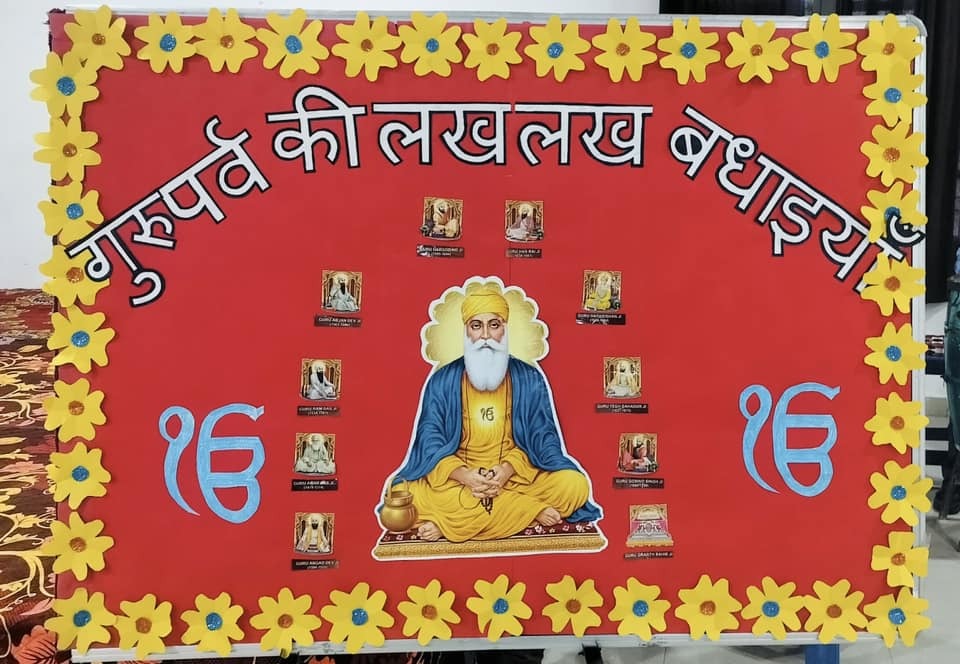 गुरुपर्व की लख लख बधाइयाँ
GURU HARGOBIND JI
GURU HAR RAI JI
GURU ARJAN DEV JI
GURU HARKRISHAN JI
GURU RAM DAS JI
GURU TEGH BAHADUR JI
GURU AMAR DAS JI
GURU GOBIND SINGH JI
GURU ANGAD DEV
GURU GRANTH SAHIB JI
ੴ
ੴ
ੴ